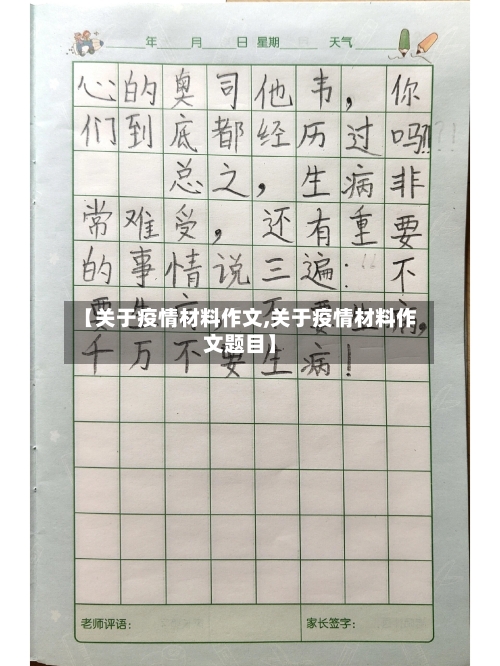 年 月 日 星期 天气
心的奥司他韦，你
们到底都经历过吗!!?!
总之，生病非
常难受，还有重要
的事情说三遍：“不
要生病，不要生病，
【关于疫情材料作文,关于疫情材料作
文题目】
千万不要生病！
老师评语： 家长签字：